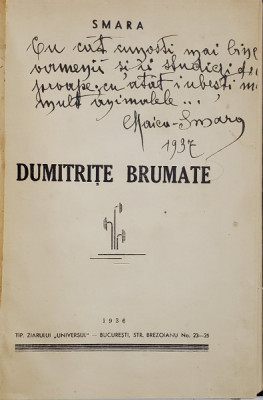 SMARA
Cu cât cunoști mai bine
oamenii și îi studiezi de
aproape, cu atât iubești m.
mult animalele...
Maica-Smara
1937
DUMITRIȚE BRUMATE
1936
TIP. ZIARULUI „UNIVERSUL" — BUCUREȘTI, STR. BREZOIANU No. 23—25